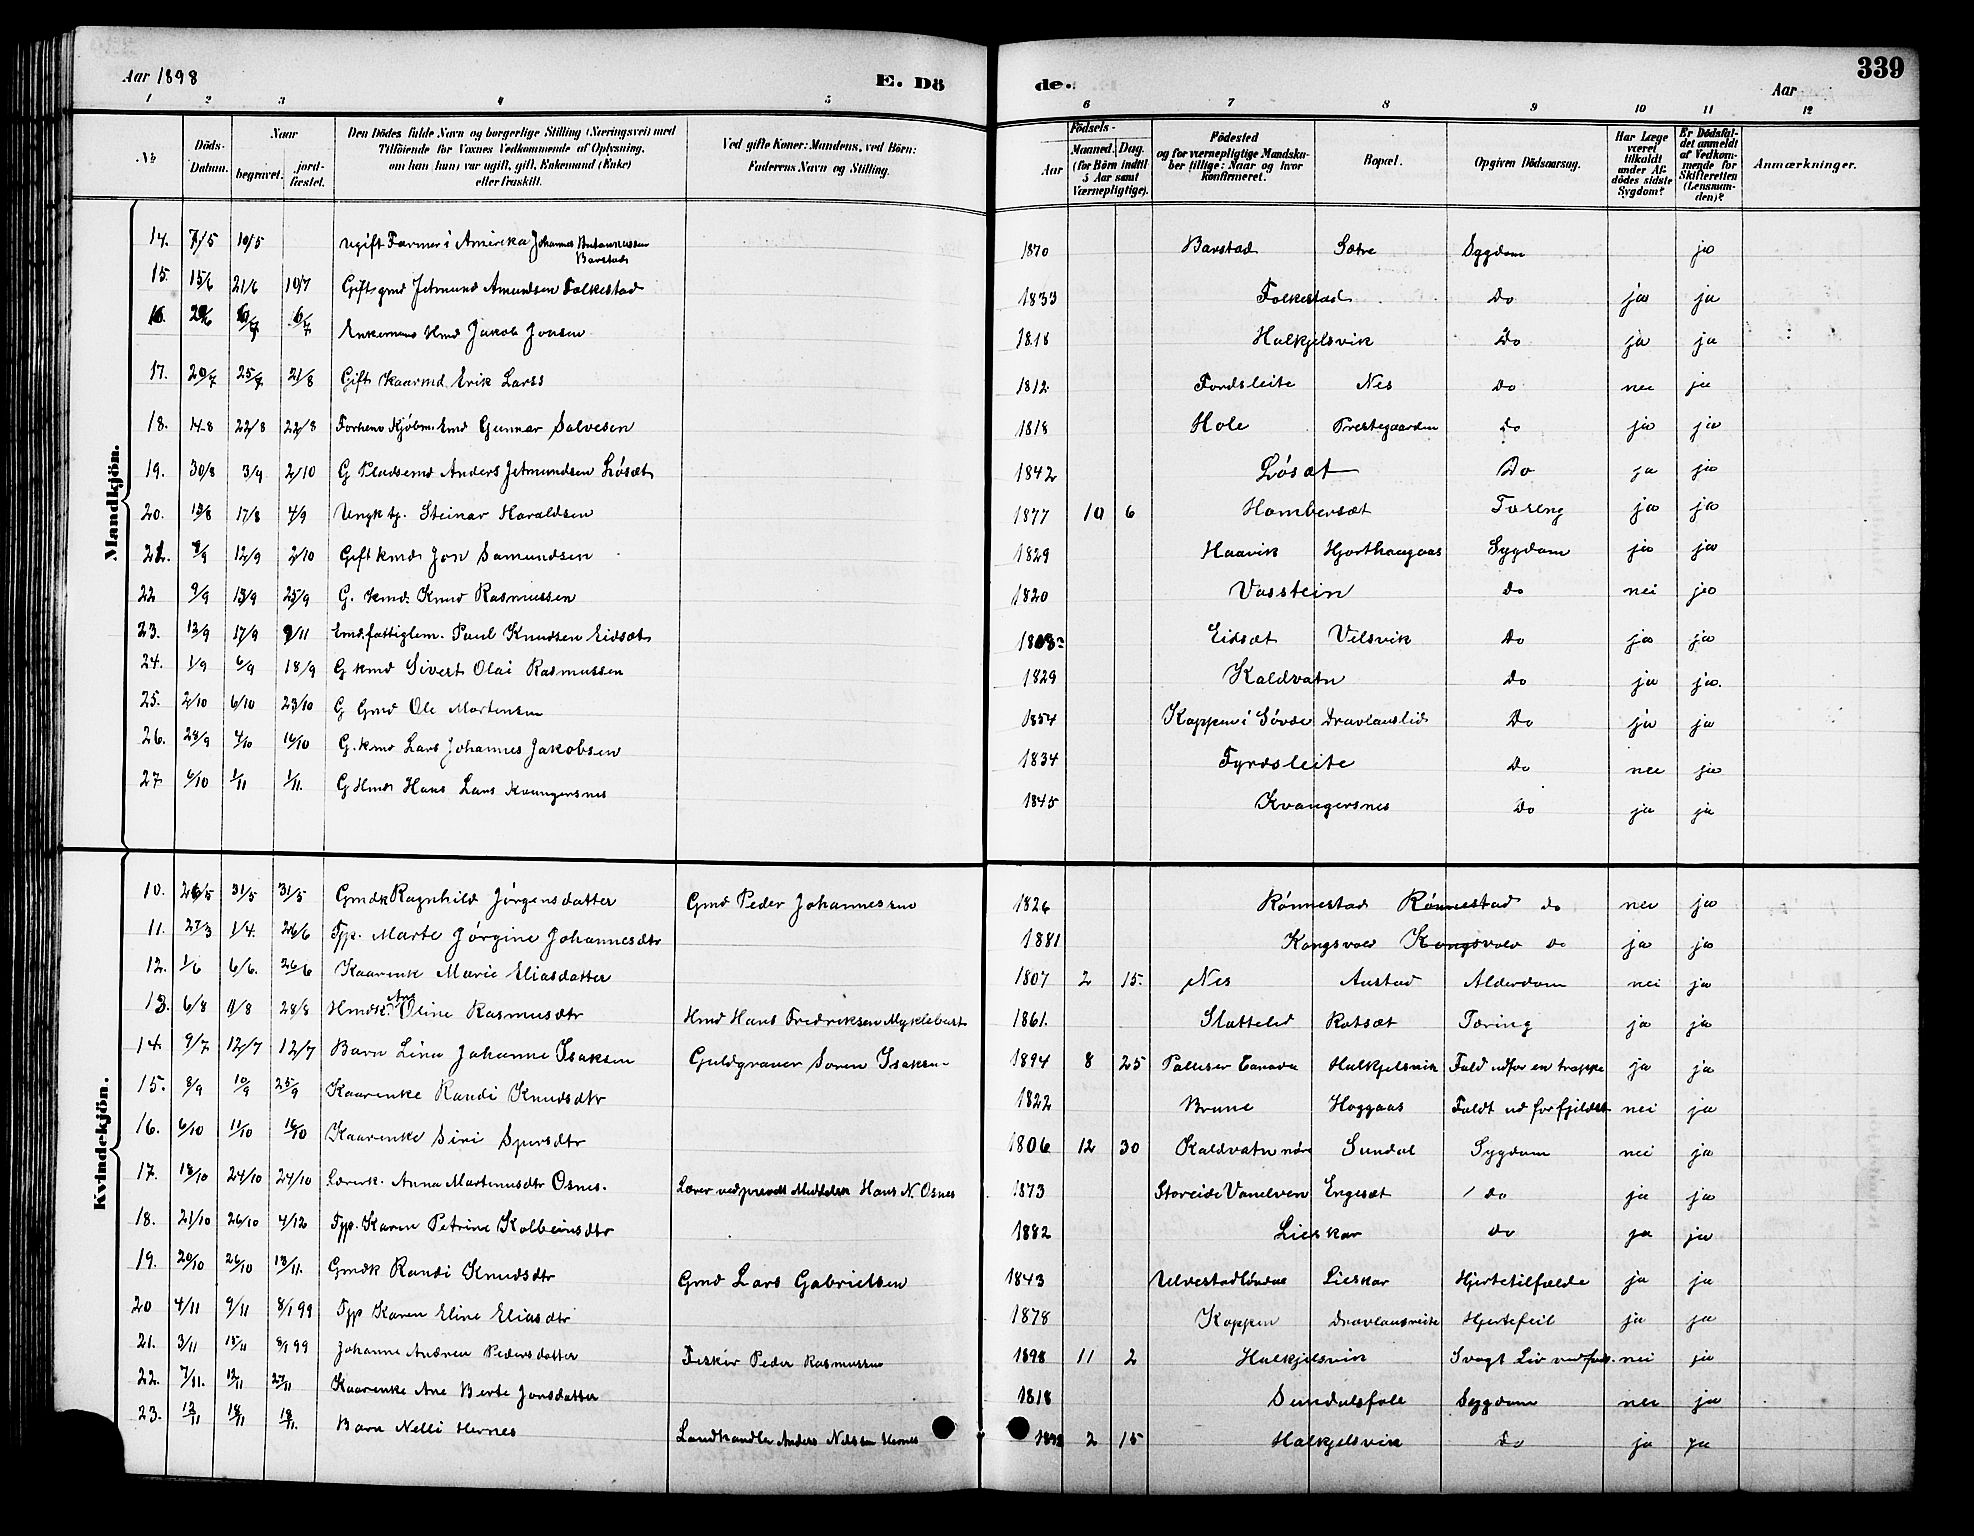 Aar 1898
E. Dö
de.
Aar
339
1 2 3 4 5 6 7 8 9 10 11 12
No
Döds-Datum.
Naar
begravet.
jord-fæstet.
Den Dödes fulde Navn og borgerlige Stilling (Næringsvei) med
Tilföiende for Voxnes Vedkommende af Oplysning,
om han (hun) var ugift, gift, Enkemand (Enke)
eller fraskilt.
Ved gifte Koner: Mandens, ved Börn:
Faderens Navn og Stilling.
Födsels-
Aar
Maaned. Dag.
(for Börn indtil
5 Aar samt
Værnepligtige).
Födested
og for værnepligtige Mandska-
ber tillige: Naar og hvor
konfirmeret.
Bopæl.
Opgiven Dödsaarsag.
Har Læge
været
tilkaldt
under Af-
dödes sidste
Sygdom?
Er Dödsfal-
det anmeldt
af Vedkom-
mende for
Skifteretten
(Lensman-
den)?
Anmærkninger.
Mandkjön.
14. 7/5 10/5 Ugift Farmer i Amerika Johannes Barstad 1870 Barstad Sætre Sygdom ja
15. 15/6 21/6 10/7 Gift gmd Jetmund Amundsen Folkestad 1833 Folkestad Do ja ja
16. 6/7 Enkemand Hmd Jakob Jonsen 1818 Halkjelsvik Do ja ja
17. 20/7 25/7 21/8 Gift Kaarmd. Erik Larss 1812 Fordsleite Nes Do nei ja
18. 14-8 22/8 22/8 Forhenv Kjøbm. Emd Gunnar Salvesen 1818 Hole Prestegaarden Do ja ja
19. 30/8 3/9 2/10 G Pladsemd Anders Jetmundsen Løsæt 1842 Løsæt Do ja ja
20. 13/8 17/8 4/9 Ungk tj. Steinar Haraldsen 1877 10 6 Hambersæt Tæreng ja ja
21. 8/9 12/9 2/10 Gift kmd Jon Samundsen 1829 Haavik Hjorthaugaas Sygdom ja ja
22 9/9 13/9 25/9 G. kmd. Knud Rasmussen 1820 Vasstein Do nei ja
23. 12/9 17/9 9/11 Emd. fattiglem. Paul Knudsen Eidsæt Eidsæt Velsvik Do ja ja
24. 1/9 6/9 18/9 G kmd Sivert Olai Rasmussen 1829 Kaldvatn Do ja ja.
25. 2/10 6/10 23/10 G Gmd Ole Martensen 1854 Koppen i Søvde Dravlauslid Do ja ja
26. 28/9 4/10 16/10 G. kmd Lars Johannes Jakobsen 1834 Fyrdsleite Do nei ja
27 6/10 1/11 1/11. G Hmd Hans Lars Kvangersnes 1845 Kvangersnes Do ja ja
Kvindekjön.
10. 26/5 31/5 31/5 Gmdk Ragnhild Jørgensdatter Gmd Peder Johannessen 1826 Rønnestad Rønnestad do nei ja
11. 27/3 1/4. 26/6 Tjp. Marte Jørgine Johannesdtr 1881 Kongsvold Kongsvold Do ja ja
12. 1/6 6/6. 26/6 Kaarenk Marie Eliasdatter 1807 2 15. Nes Austad Alderdom nei ja
13. 6/8 11/8 28/8 Hmdk. Ane Oline Rasmusdtr Hmd Hans Fredriksen Myklebust 1861. Slettelid Rotsæt Tæring ja ja
14. 9/7 12/7 12/7 Barn Lina Johanne Isaksen Guldgraver Søren Isaksen 1894 8 25 Palliser Canada Halkjelsvik Fald udfor en trappe ja ja
15. 8/9 10/9 25/9 Kaarenke Randi Knudsdtr 1822 Brune Hoggaas Faldt ud for fjeldet nei ja
16. 6/10 11/10 16/10 Kaarenke Siri Sjursdtr 1806 12 30 Kaldvatn nøre Sundal Sygdom nei ja
17. 18/10 24/10 24/10 Lærerk. Anna Martinusdtr Osnes. Lærer ved Hans N. Osnes 1873 Storeide Vanelven Engesæt do ja ja
18. 21/10 26/10 4/12 Tjp. Karen Petrine Kolbeinsdtr 1882 Lieskar do ja ja
19. 20/10 26/10 13/11. Gmdk Randi Knudsdtr Gmd Lars Gabrielsen 1843 Ulvestad Lieskar Hjertetilfælde ja ja
20 4/11 9/11 8/1 99 Tjp Karen Eline Eliasdtr 1878 Koppen Dravlausreite Hjertefeil ja ja
21. 3/11 15/11 8/1 99 Johanne Andrea Pedersdatter Fisker Peder Rasmussen 1898 11 2 Halkjelsvik Svagt Liv ved føds. nei ja
22. 7/11. 12/11 27/11 Kaarenke Ane Berte Jonsdatter 1818 Sundalsfole Sygdom nei ja
23. 12/11 18/11 18/11. Barn Nelli Hernes Landhandler Anders Nilssen Hernes 1898 2 15 Halkjelsvik Do ja ja